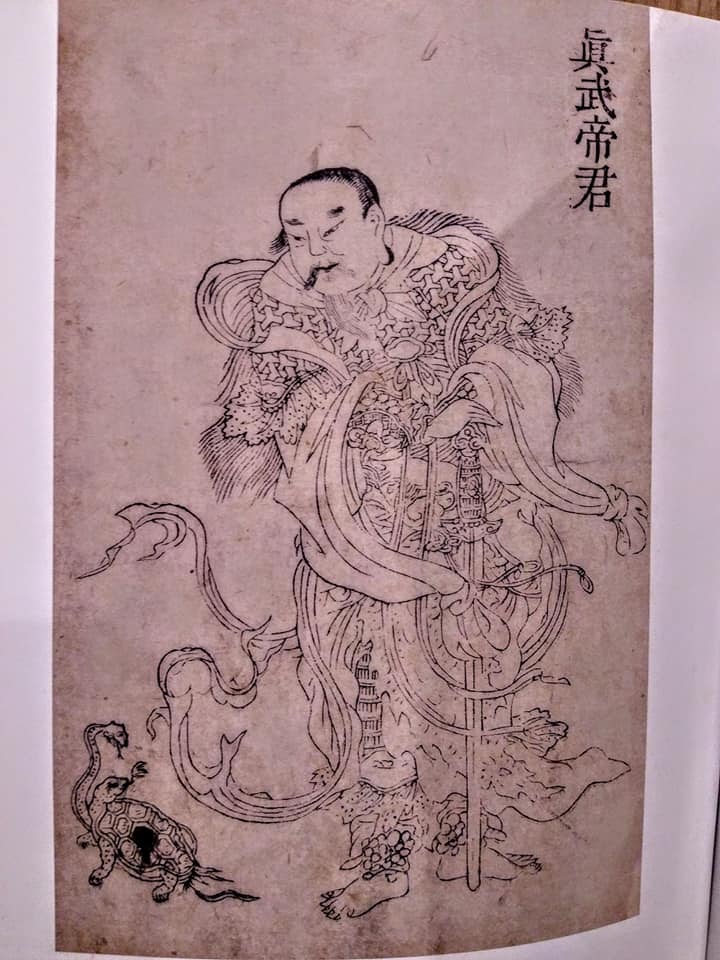 眞武帝君